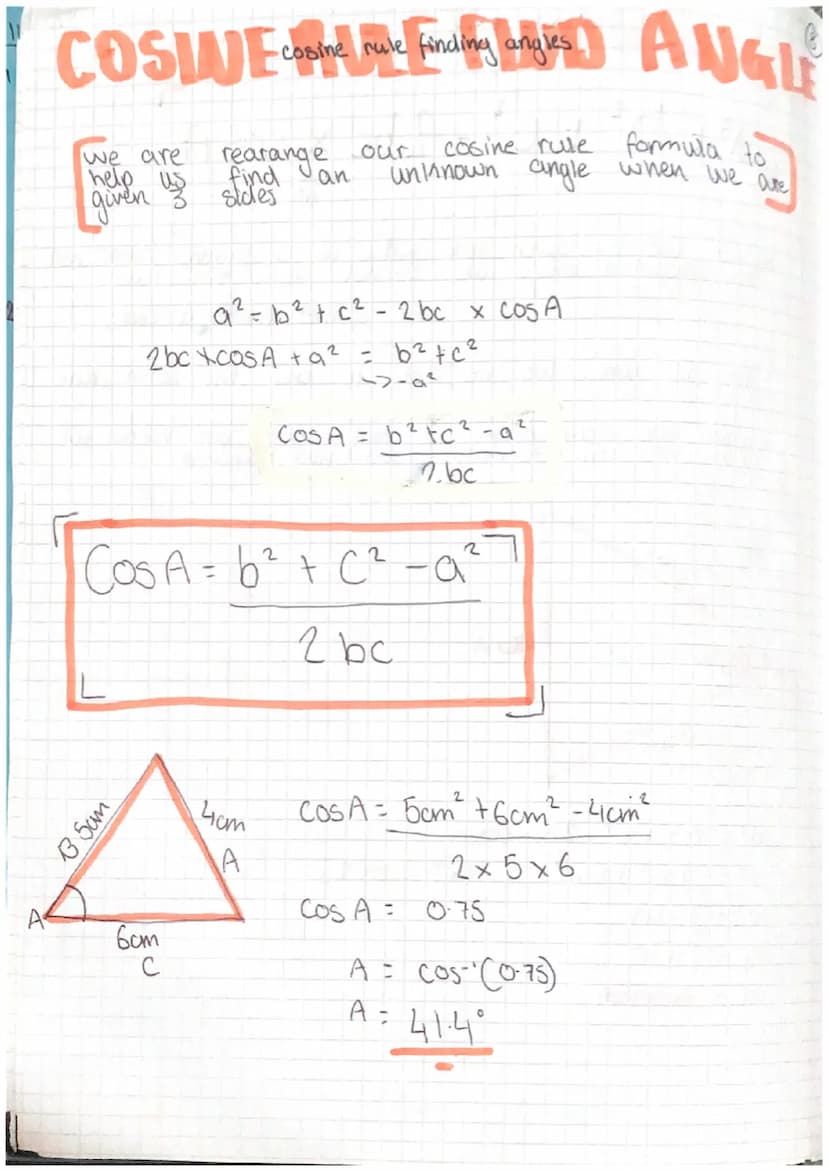 COSINE RULE FIND ANGLE
cosine rule finding angles
we are rearange our cosine rule formula to
help us find an unknown angle when we are
given 3 sides
a² = b² + c² - 2bc × cosA
2bc × cosA + a² = b² + c²
↳ -a²
cosA = b² + c² - a²
2bc
CosA = b² + c² - a²
2bc
B 5cm
4cm
A
A
6cm
C
cosA = 5cm² + 6cm² - 4cm²
2 × 5 × 6
cos A = 0.75
A = cos⁻¹(0.75)
A = 41.4°